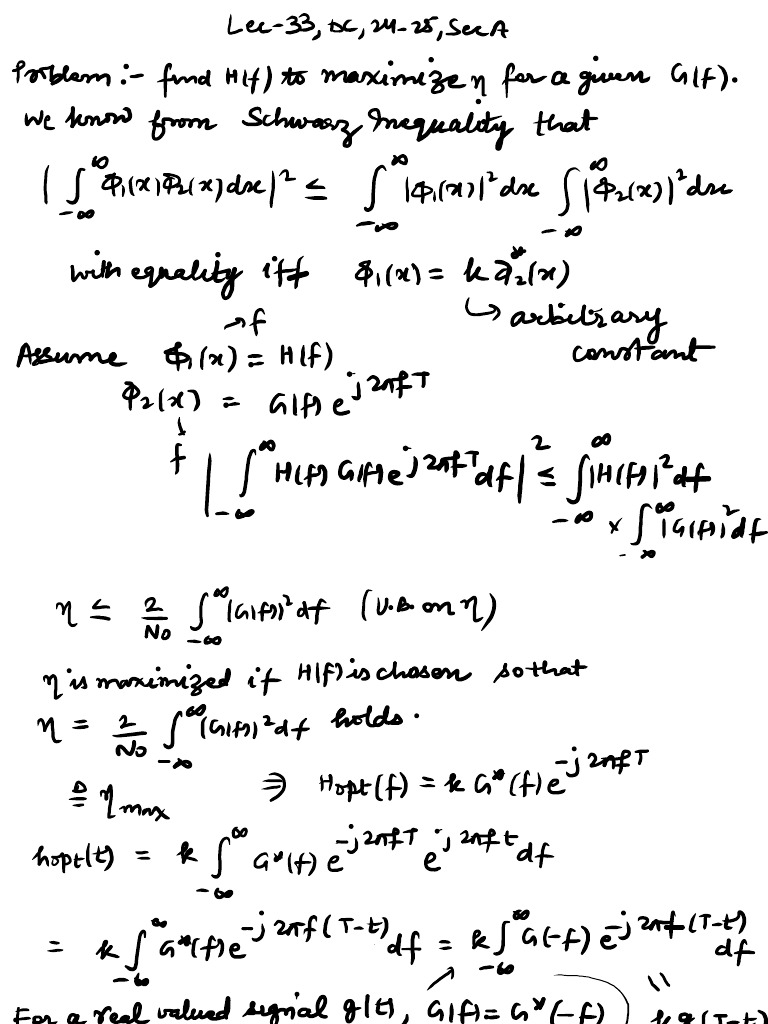 Lec-33, DC, 24-25, Sec A
Problem :- find H(f) to maximize η for a given G(f).
We know from Schwarz Inequality that
| ∫_{-∞}^{∞} Φ₁(x) Φ₂(x) dx |² ≤ ∫_{-∞}^{∞} |Φ₁(x)|² dx ∫_{-∞}^{∞} |Φ₂(x)|² dx
with equality iff Φ₁(x) = k Φ₂*(x)
↳ arbitrary constant
Assume Φ₁(x) = H(f)
→ f
Φ₂(x) = G(f) e^{j2πfT}
↓
f
| ∫_{-∞}^{∞} H(f) G(f) e^{j2πfT} df |² ≤ ∫_{-∞}^{∞} |H(f)|² df
× ∫_{-∞}^{∞} |G(f)|² df
η ≤ 2/N₀ ∫_{-∞}^{∞} |G(f)|² df (U.B. on η)
η is maximized if H(f) is chosen so that
η = 2/N₀ ∫_{-∞}^{∞} |G(f)|² df holds.
≜ η_max ⇒ H_opt(f) = k G*(f) e^{-j2πfT}
h_opt(t) = k ∫_{-∞}^{∞} G*(f) e^{-j2πfT} e^{j2πft} df
= k ∫_{-∞}^{∞} G*(f) e^{-j2πf(T-t)} df = k ∫_{-∞}^{∞} G(-f) e^{-j2πf(T-t)} df
For a real valued signal g(t), G(f) = G*(-f) || k g(T-t)